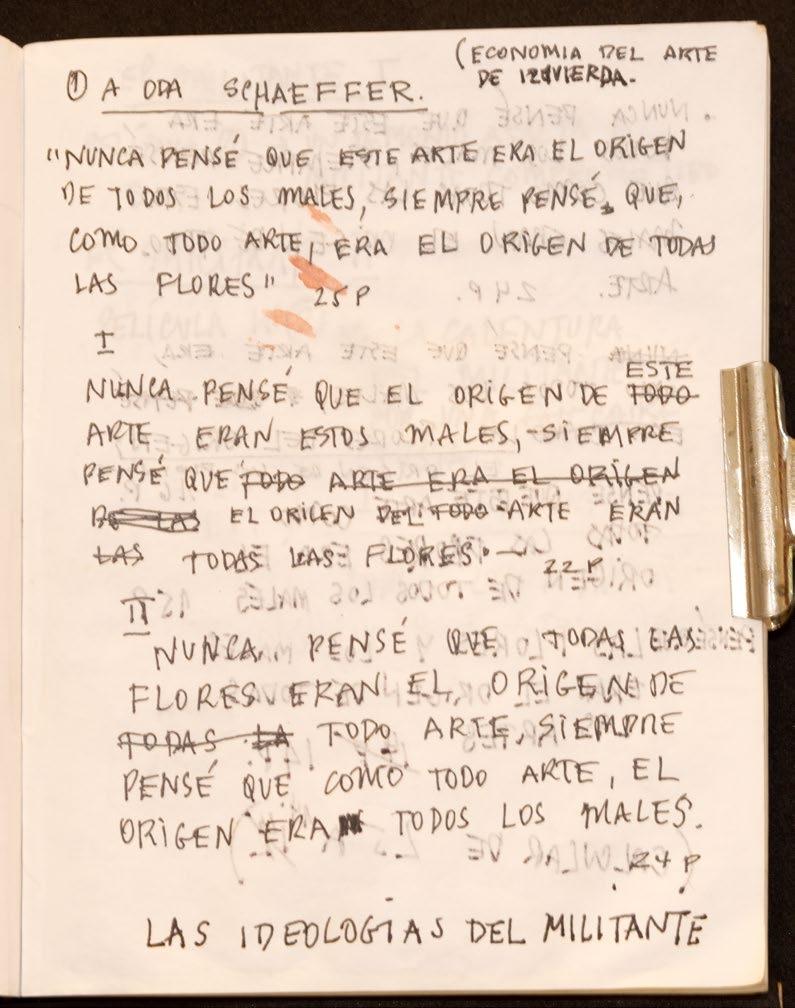 (ECONOMIA DEL ARTE
DE IZQVIERDA.
① A ODA SCHAEFFER.
"NUNCA PENSÉ QUE ESTE ARTE ERA EL ORIGEN
DE TODOS LOS MALES, SIEMPRE PENSÉ, QUE,
COMO TODO ARTE, ERA EL ORIGEN DE TODAS
LAS FLORES" 25 P
I
ESTE
NUNCA PENSÉ QUE EL ORIGEN DE TODO
ARTE ERAN ESTOS MALES, SIEMPRE
PENSÉ QUE TODO ARTE ERA EL ORIGEN
DE LAS EL ORIGEN DEL TODO ARTE ERAN
LAS TODAS LAS FLORES. — 22 P.
II
NUNCA PENSÉ QUE TODAS LAS
FLORES ERAN EL ORIGEN DE
TODAS LA TODO ARTE, SIEMPRE
PENSÉ QUE COMO TODO ARTE, EL
ORIGEN ERA TODOS LOS MALES.
24 P
LAS IDEOLOGIAS DEL MILITANTE